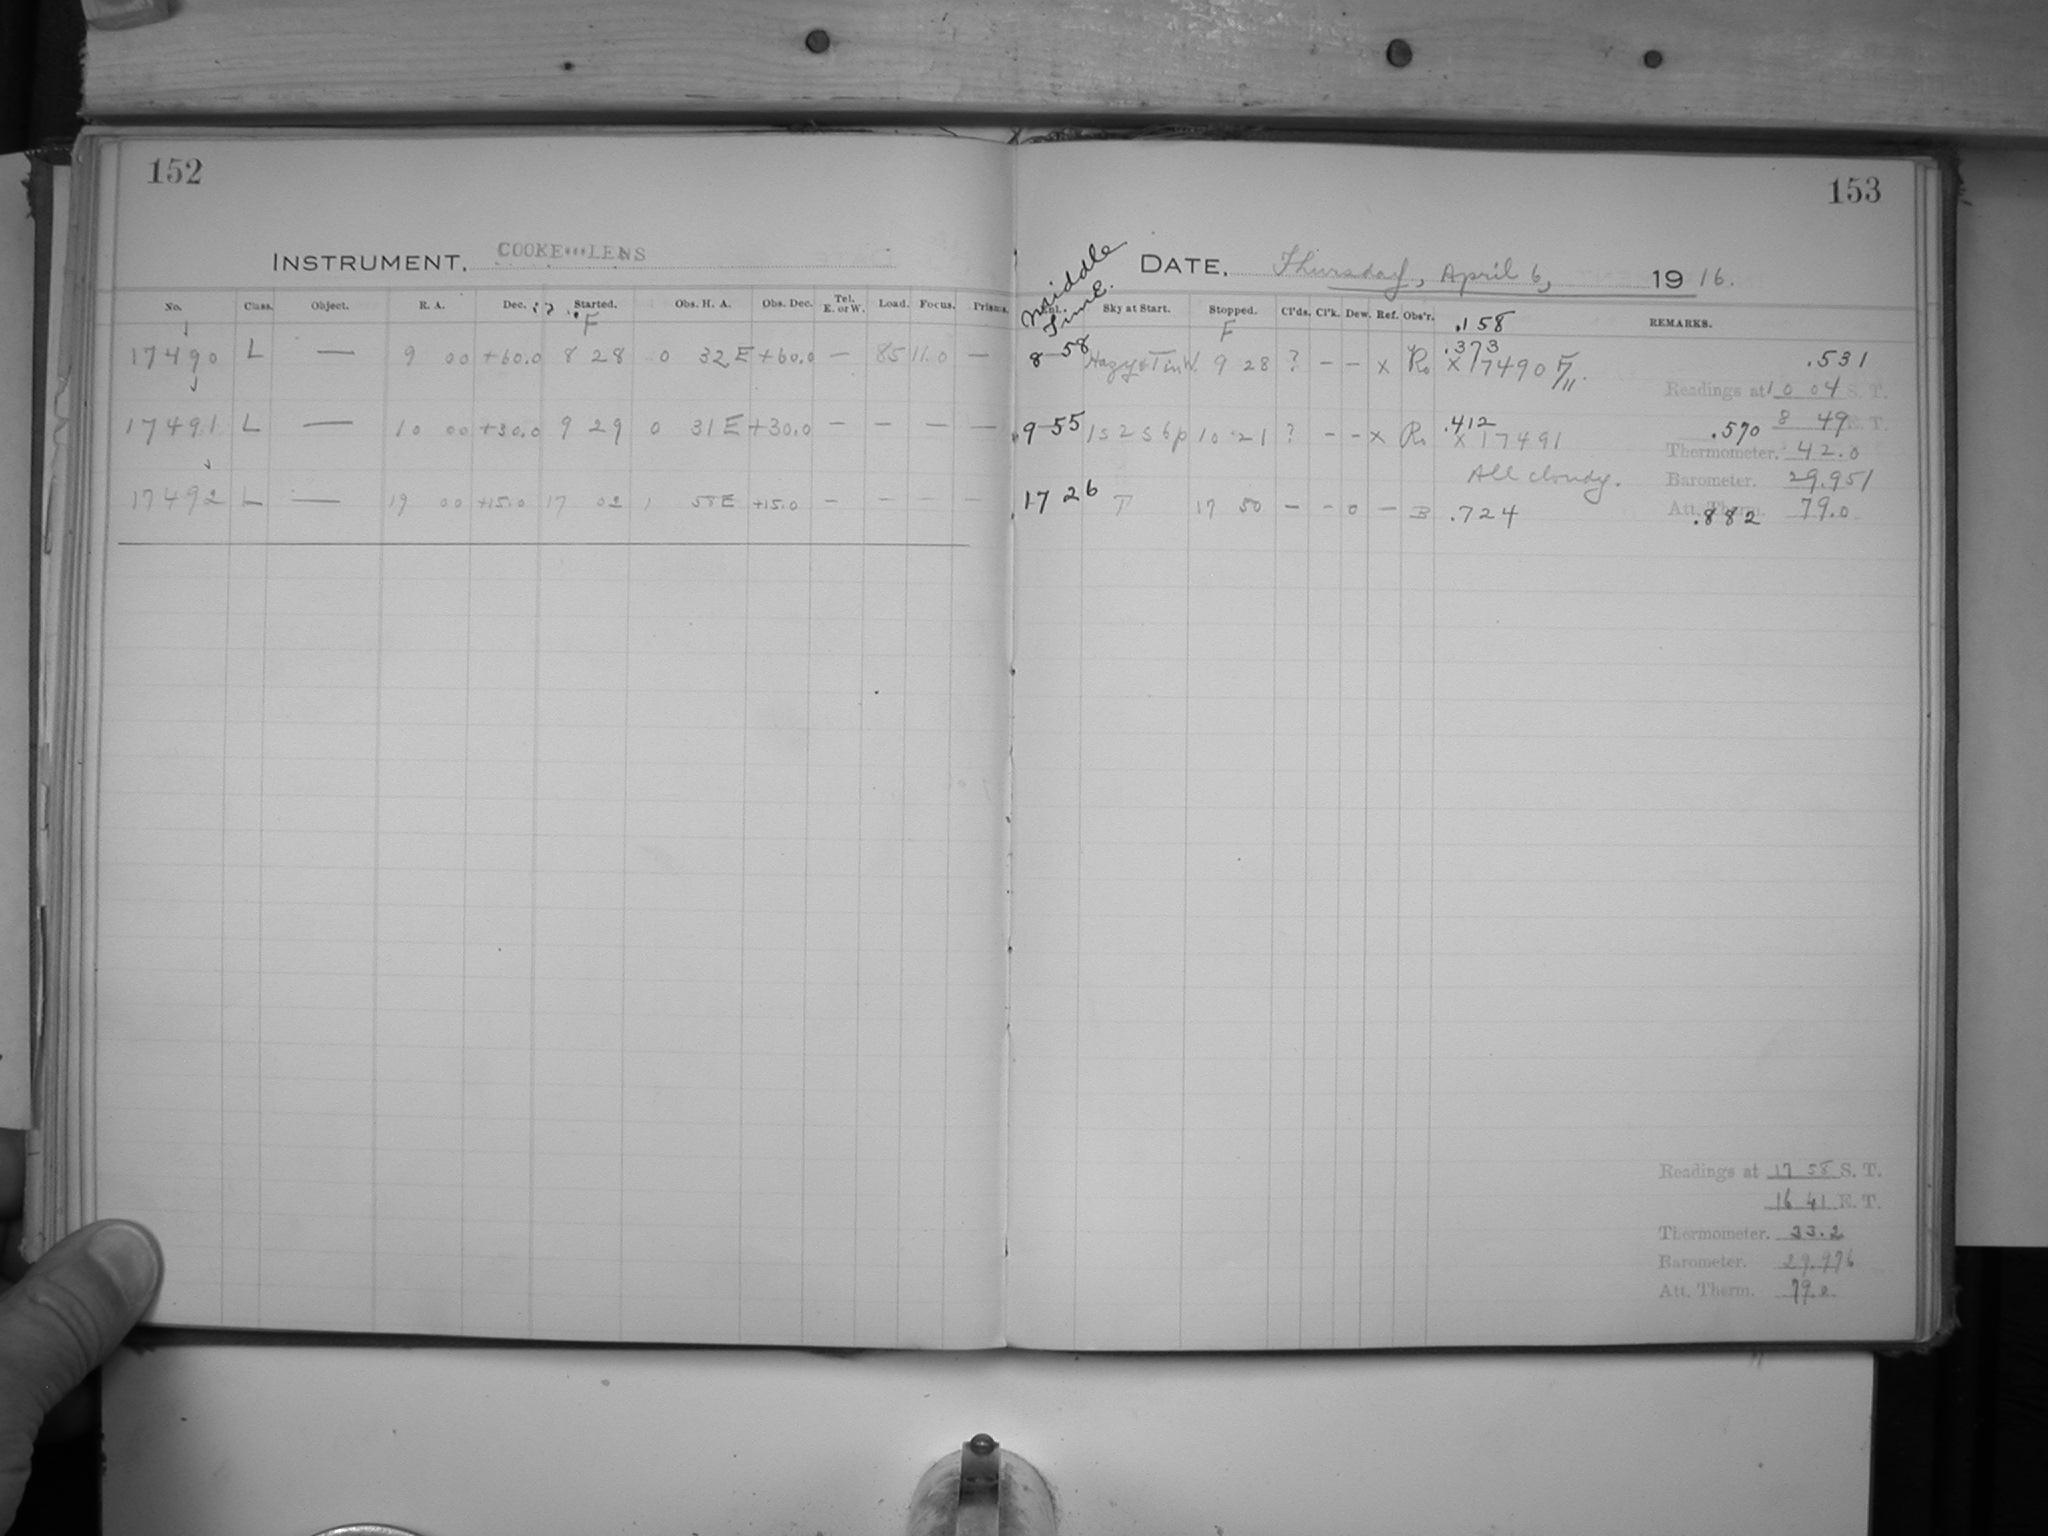 152
INSTRUMENT. COOKE LENS
No. Class. Object. R. A. Dec. Started. Obs. H. A. Obs. Dec. Tel. E. or W. Load. Focus. Prisms.
F
17490 L — 9 00 +60.0 8 28 0 32 E +60.0 — 85 11.0 —
17491 L — 10 00 +30.0 9 29 0 31 E +30.0 — — — —
17492 L — 19 00 +15.0 17 02 1 58 E +15.0 — — — —
153
DATE. Thursday, April 6, 1916.
Middle Time.
Sky at Start. Stopped. Cl'ds. Cl'k. Dew. Ref. Obs'r. REMARKS.
F .158
8 58 Hazy & T in W. 9 28 ? — — x Ro .373 x 17490 F/11. .531
Readings at 10 04 S. T.
8 49 E. T.
9 55 1s 2s 6p 10 21 ? — — x Ro .412 x 17491 .570
Thermometer. 42.0
All cloudy.
Barometer. 29.951
17 26 T 17 50 — — 0 — B .724 .882
Att. Therm. 79.0
Readings at 17 58 S. T.
16 41 E. T.
Thermometer. 33.2
Barometer. 29.976
Att. Therm. 79.0